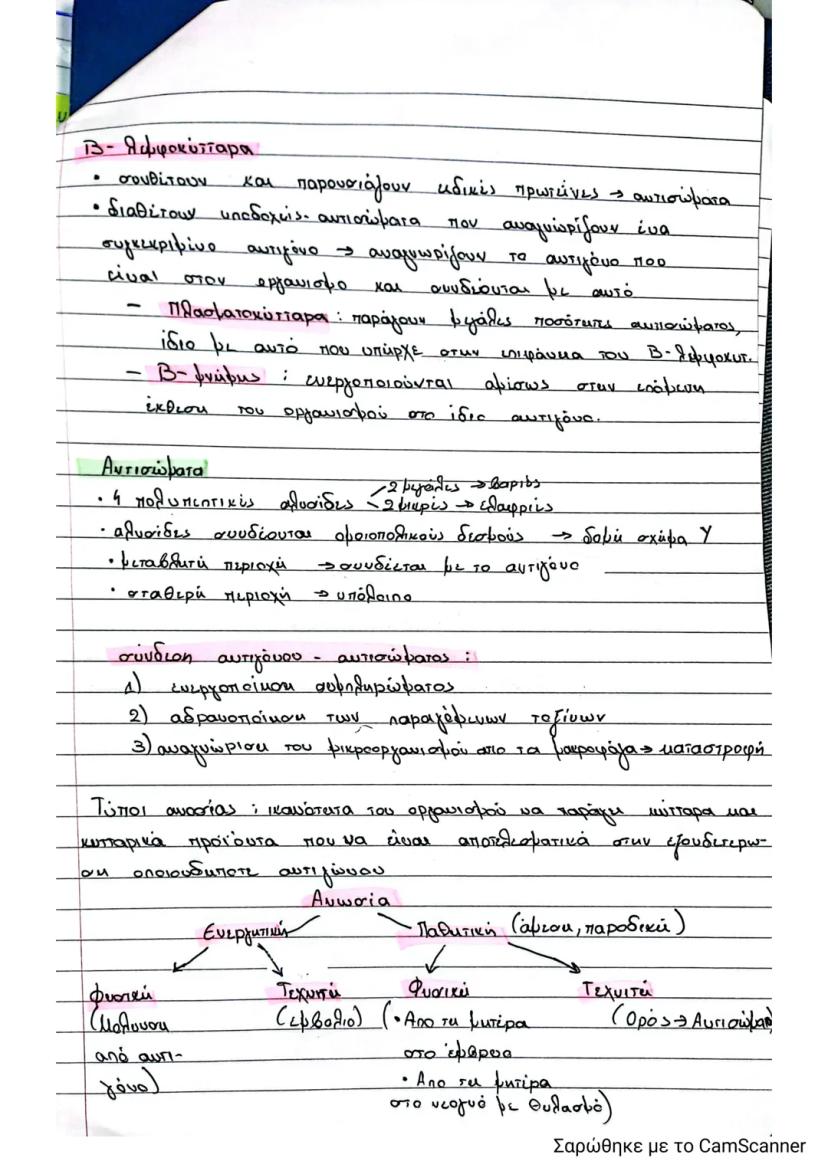 Β- λεμφοκύτταρα
• συνθέτουν και παρουσιάζουν ειδικές πρωτεΐνες → αντισώματα
• διαθέτουν υποδοχείς- αντισώματα που αναγνωρίζουν ένα
συγκεκριμένο αντιγόνο → αναγνωρίζουν το αντιγόνο που
είναι στον οργανισμό και συνδέονται με αυτό
- Πλασματοκύτταρα : παράγουν μεγάλες ποσότητες αντισώματος,
ίδιο με αυτό που υπήρχε στην επιφάνεια του Β-λεμφοκυτ.
- Β- μνήμης : ενεργοποιούνται αμέσως στην επόμενη
έκθεση του οργανισμού στο ίδιο αντιγόνο.
Αντισώματα
• 4 πολυπεπτικές αλυσίδες 2 μεγάλες → βαριές
2 μικρές → ελαφριές
• αλυσίδες συνδέονται ομοιοπολικούς δεσμούς → δομή σχήμα Υ
• μεταβλητή περιοχή → συνδέεται με το αντιγόνο
• σταθερή περιοχή → υπόλοιπο
σύνδεση αντιγόνου - αντισώματος :
1) ενεργοποίηση συμπληρώματος
2) αδρανοποίηση των παραγόμενων τοξίνων
3) αναγνώριση του μικροοργανισμού απο τα μακροφάγα → καταστροφή
Τύποι ανοσίας : ικανότητα του οργανισμού να παράγει κύτταρα και
κυτταρικά προϊόντα που να είναι αποτελεσματικά στην εξουδετέρω-
ση οποιουδήποτε αντιγόνου
Ανωσία
Ενεργητική Παθητική (άμεση, παροδική)
φυσική Τεχνητή Φυσική Τεχνιτή
(Μόλυνση (εμβόλιο) (• Απο τη μητέρα (Ορός → Αντισώματα)
από αντι- στο έμβρυο
γόνο) • Απο τη μητέρα
στο νεογνό με θηλασμό)
Σαρώθηκε με το CamScanner